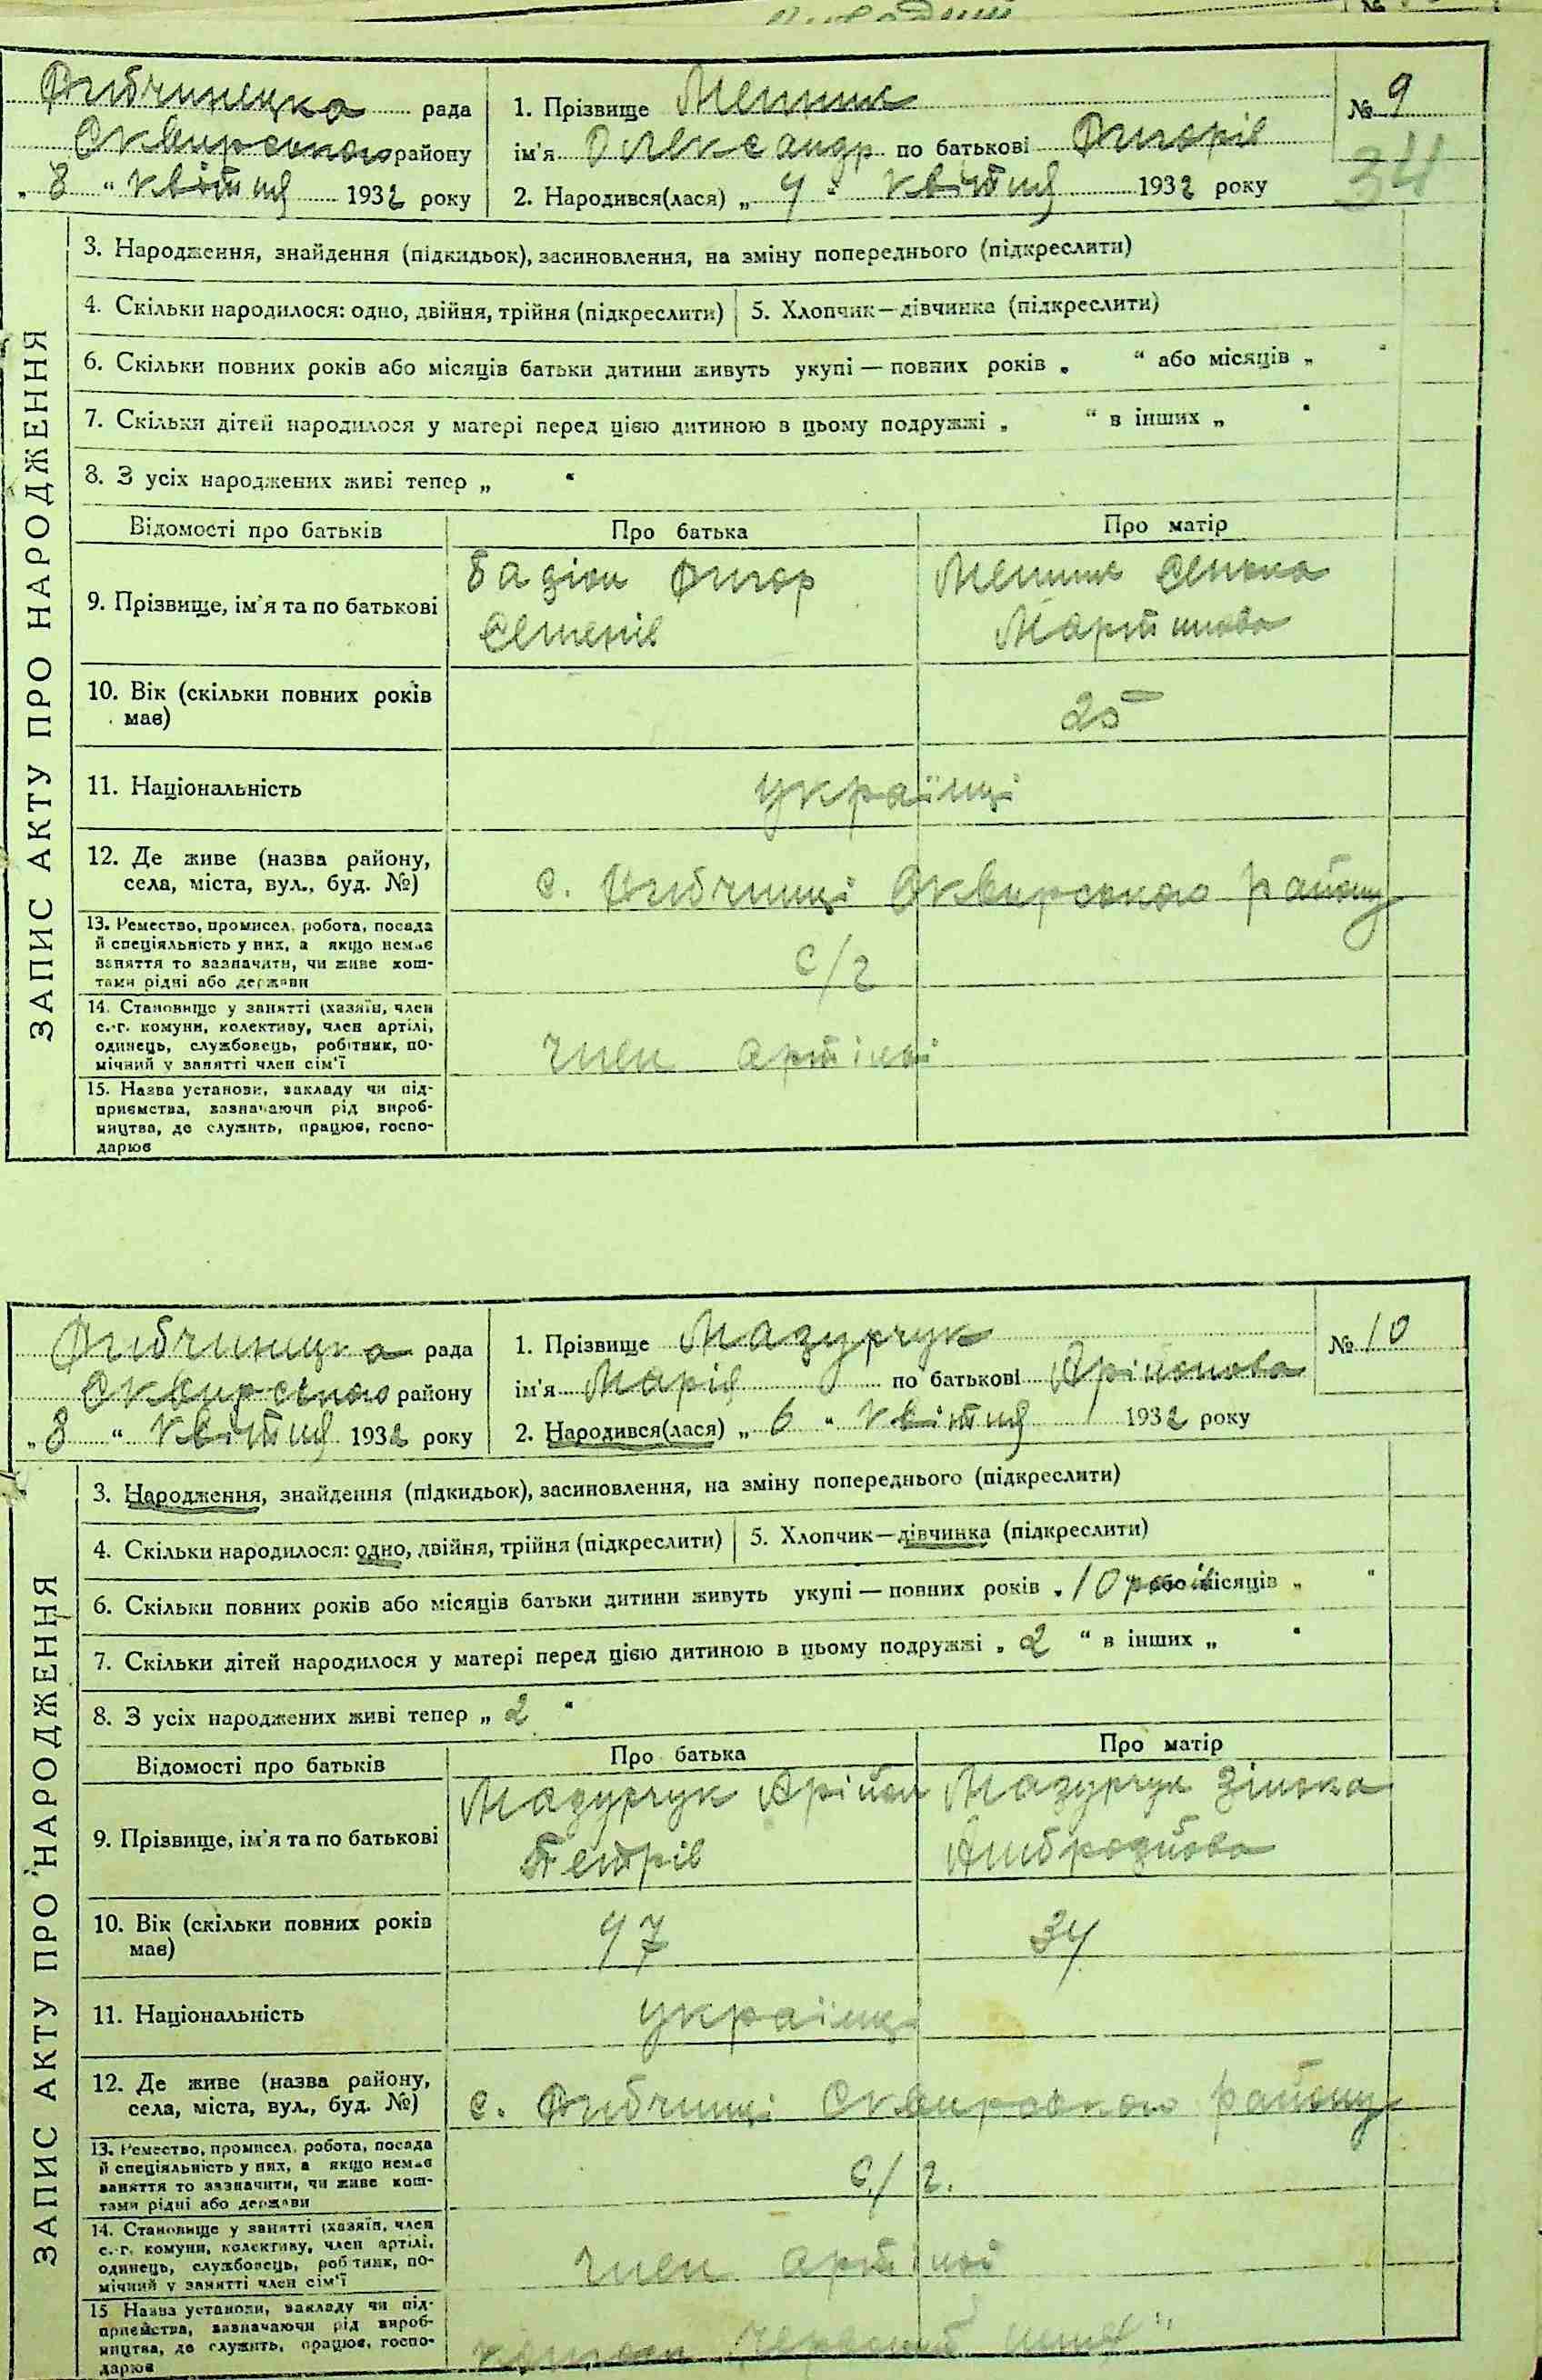 рада
району
„ 8 “ квітня 1932 року
1. Прізвище
ім'я Олександр по батькові
2. Народився(лася) „ 4 “ квітня 1932 року
№ 9
34
ЗАПИС АКТУ ПРО НАРОДЖЕННЯ
3. Народження, знайдення (підкидьок), засиновлення, на зміну попереднього (підкреслити)
4. Скільки народилося: одно, двійня, трійня (підкреслити) 5. Хлопчик—дівчинка (підкреслити)
6. Скільки повних років або місяців батьки дитини живуть укупі — повних років „ “ або місяців „ “
7. Скільки дітей народилося у матері перед цією дитиною в цьому подружжі „ “ в інших „ “
8. З усіх народжених живі тепер „ “
Відомості про батьків Про батька Про матір
9. Прізвище, ім'я та по батькові
Семенів
10. Вік (скільки повних років
має)
25
11. Національність українці
12. Де живе (назва району,
села, міста, вул., буд. №)
с. Сквирського району
13. Ремество, промисел, робота, посада
й спеціяльність у них, а якщо немає
заняття то зазначити, чи живе кош-
тами рідні або держави
с/г
14. Становище у занятті (хазяїн, член
с.-г. комуни, колективу, член артілі,
одинець, службовець, робітник, по-
мічний у занятті член сім'ї
член артілі
15. Назва установи, закладу чи під-
приємства, зазначаючи рід вироб-
ництва, де служить, працює, госпо-
дарює
рада
Сквирського району
„ 8 “ квітня 1932 року
1. Прізвище Мазурчук
ім'я Марія по батькові
2. Народився(лася) „ 6 “ квітня 1932 року
№ 10
ЗАПИС АКТУ ПРО НАРОДЖЕННЯ
3. Народження, знайдення (підкидьок), засиновлення, на зміну попереднього (підкреслити)
4. Скільки народилося: одно, двійня, трійня (підкреслити) 5. Хлопчик—дівчинка (підкреслити)
6. Скільки повних років або місяців батьки дитини живуть укупі — повних років „ 10 років або місяців „ “
7. Скільки дітей народилося у матері перед цією дитиною в цьому подружжі „ 2 “ в інших „ “
8. З усіх народжених живі тепер „ 2 “
Відомості про батьків Про батька Про матір
9. Прізвище, ім'я та по батькові
Мазурчук Мазурчук Зінька
Петрів
10. Вік (скільки повних років
має)
47 34
11. Національність українці
12. Де живе (назва району,
села, міста, вул., буд. №)
с. Сквирського району
13. Ремество, промисел, робота, посада
й спеціяльність у них, а якщо немає
заняття то зазначити, чи живе кош-
тами рідні або держави
с/г.
14. Становище у занятті (хазяїн, член
с.-г. комуни, колективу, член артілі,
одинець, службовець, робітник, по-
мічний у занятті член сім'ї
член артілі
15. Назва установи, закладу чи під-
приємства, зазначаючи рід вироб-
ництва, де служить, працює, госпо-
дарює